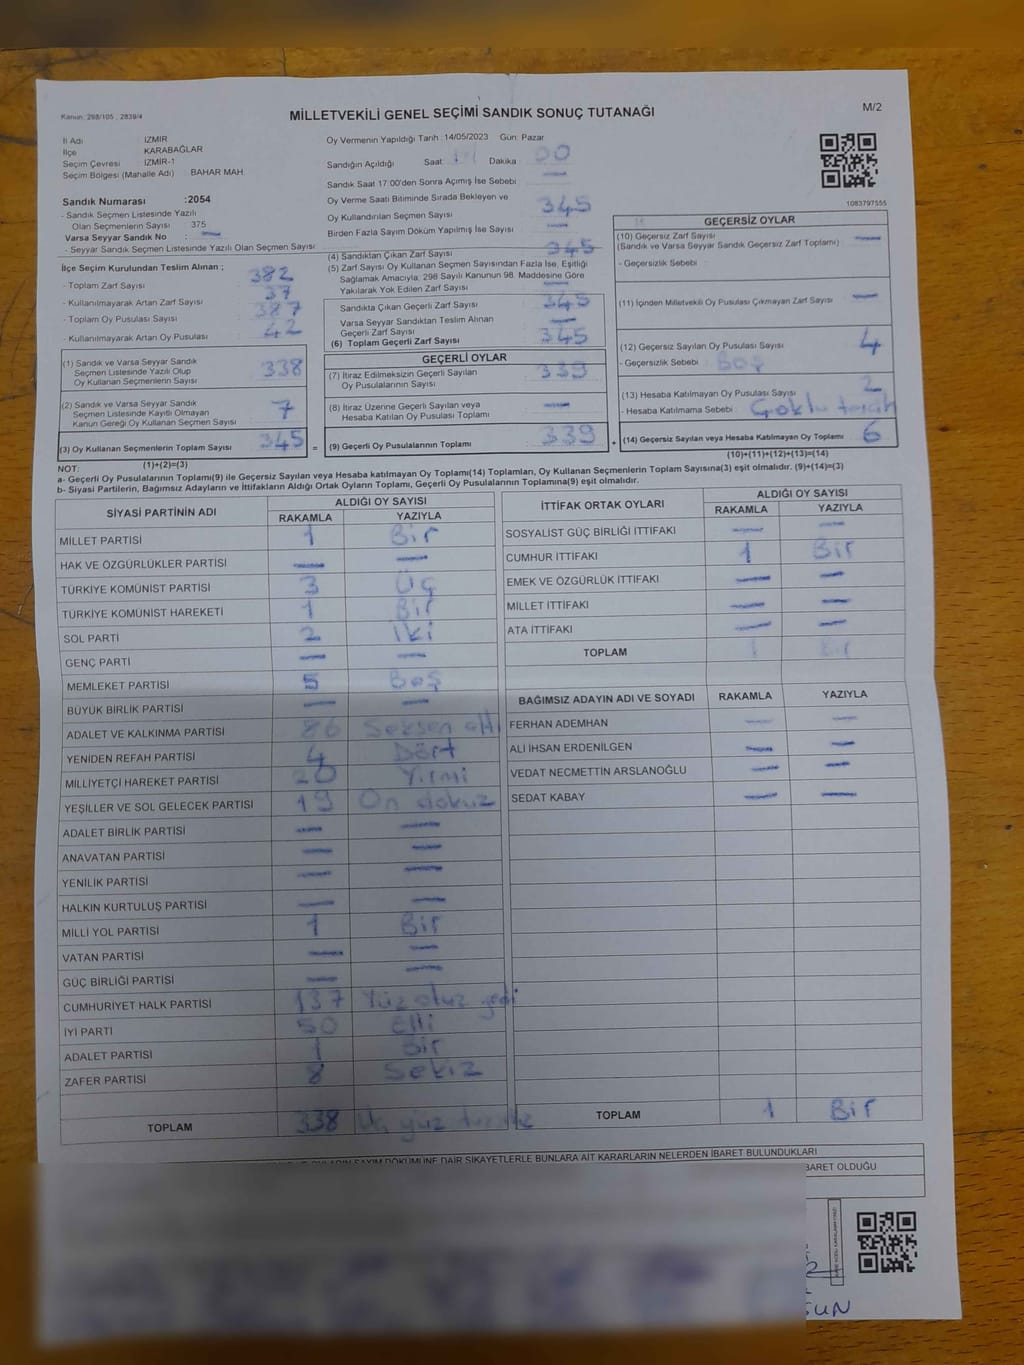 Kanun: 298/105 , 2839/4
MİLLETVEKİLİ GENEL SEÇİMİ SANDIK SONUÇ TUTANAĞI
M/2
İl Adı İZMİR
İlçe KARABAĞLAR
Seçim Çevresi İZMİR-1
Seçim Bölgesi (Mahalle Adı) BAHAR MAH.
Sandık Numarası :2054
- Sandık Seçmen Listesinde Yazılı
Olan Seçmenlerin Sayısı 375
Varsa Seyyar Sandık No : —
- Seyyar Sandık Seçmen Listesinde Yazılı Olan Seçmen Sayısı
İlçe Seçim Kurulundan Teslim Alınan ;
- Toplam Zarf Sayısı 382
- Kullanılmayarak Artan Zarf Sayısı 37
- Toplam Oy Pusulası Sayısı 387
- Kullanılmayarak Artan Oy Pusulası 42
(1) Sandık ve Varsa Seyyar Sandık
Seçmen Listesinde Yazılı Olup
Oy Kullanan Seçmenlerin Sayısı 338
(2) Sandık ve Varsa Seyyar Sandık
Seçmen Listesinde Kayıtlı Olmayan
Kanun Gereği Oy Kullanan Seçmen Sayısı 7
(3) Oy Kullanan Seçmenlerin Toplam Sayısı 345 =
Oy Vermenin Yapıldığı Tarih :14/05/2023 Gün: Pazar
Sandığın Açıldığı Saat Dakika 00
Sandık Saat 17:00'den Sonra Açımış İse Sebebi —
Oy Verme Saati Bitiminde Sırada Bekleyen ve
Oy Kullandırılan Seçmen Sayısı 345
Birden Fazla Sayım Döküm Yapılmış İse Sayısı —
(4) Sandıktan Çıkan Zarf Sayısı 345
(5) Zarf Sayısı Oy Kullanan Seçmen Sayısından Fazla İse, Eşitliği
Sağlamak Amacıyla, 298 Sayılı Kanunun 98. Maddesine Göre
Yakılarak Yok Edilen Zarf Sayısı —
Sandıkta Çıkan Geçerli Zarf Sayısı 345
Varsa Seyyar Sandıktan Teslim Alınan
Geçerli Zarf Sayısı —
(6) Toplam Geçerli Zarf Sayısı 345
GEÇERLİ OYLAR
(7) İtiraz Edilmeksizin Geçerli Sayılan
Oy Pusulalarının Sayısı 339
(8) İtiraz Üzerine Geçerli Sayılan veya
Hesaba Katılan Oy Pusulası Toplamı —
(9) Geçerli Oy Pusulalarının Toplamı 339 +
1083797555
GEÇERSİZ OYLAR
(10) Geçersiz Zarf Sayısı —
(Sandık ve Varsa Seyyar Sandık Geçersiz Zarf Toplamı)
- Geçersizlik Sebebi
(11) İçinden Milletvekili Oy Pusulası Çıkmayan Zarf Sayısı —
(12) Geçersiz Sayılan Oy Pusulası Sayısı 4
- Geçersizlik Sebebi : Boş
(13) Hesaba Katılmayan Oy Pusulası Sayısı 2
- Hesaba Katılmama Sebebi : Çoklu tercih
(14) Geçersiz Sayılan veya Hesaba Katılmayan Oy Toplamı 6
NOT: (1)+(2)=(3) (10)+(11)+(12)+(13)=(14)
a- Geçerli Oy Pusulalarının Toplamı(9) ile Geçersiz Sayılan veya Hesaba katılmayan Oy Toplamı(14) Toplamları, Oy Kullanan Seçmenlerin Toplam Sayısına(3) eşit olmalıdır. (9)+(14)=(3)
b- Siyasi Partilerin, Bağımsız Adayların ve İttifakların Aldığı Ortak Oyların Toplamı, Geçerli Oy Pusulalarının Toplamına(9) eşit olmalıdır.
SİYASİ PARTİNİN ADI ALDIĞI OY SAYISI
RAKAMLA YAZIYLA
MİLLET PARTİSİ 1 Bir
HAK VE ÖZGÜRLÜKLER PARTİSİ — —
TÜRKİYE KOMÜNİST PARTİSİ 3 Üç
TÜRKİYE KOMÜNİST HAREKETİ 1 Bir
SOL PARTİ 2 İki
GENÇ PARTİ — —
MEMLEKET PARTİSİ 5 Beş
BÜYÜK BİRLİK PARTİSİ — —
ADALET VE KALKINMA PARTİSİ 86 Seksen altı
YENİDEN REFAH PARTİSİ 4 Dört
MİLLİYETÇİ HAREKET PARTİSİ 20 Yirmi
YEŞİLLER VE SOL GELECEK PARTİSİ 19 On dokuz
ADALET BİRLİK PARTİSİ — —
ANAVATAN PARTİSİ — —
YENİLİK PARTİSİ — —
HALKIN KURTULUŞ PARTİSİ — —
MİLLİ YOL PARTİSİ 1 Bir
VATAN PARTİSİ — —
GÜÇ BİRLİĞİ PARTİSİ — —
CUMHURİYET HALK PARTİSİ 137 Yüz otuz yedi
İYİ PARTİ 50 Elli
ADALET PARTİSİ 1 Bir
ZAFER PARTİSİ 8 Sekiz
TOPLAM 338 Üç yüz
İTTİFAK ORTAK OYLARI ALDIĞI OY SAYISI
RAKAMLA YAZIYLA
SOSYALİST GÜÇ BİRLİĞİ İTTİFAKI — —
CUMHUR İTTİFAKI 1 Bir
EMEK VE ÖZGÜRLÜK İTTİFAKI — —
MİLLET İTTİFAKI — —
ATA İTTİFAKI — —
TOPLAM 1 Bir
BAĞIMSIZ ADAYIN ADI VE SOYADI RAKAMLA YAZIYLA
FERHAN ADEMHAN — —
ALİ İHSAN ERDENİLGEN — —
VEDAT NECMETTİN ARSLANOĞLU — —
SEDAT KABAY — —
TOPLAM 1 Bir
OYLARIN SAYIM DÖKÜMÜNE DAİR ŞİKAYETLERLE BUNLARA AİT KARARLARIN NELERDEN İBARET BULUNDUKLARI
BARET OLDUĞU